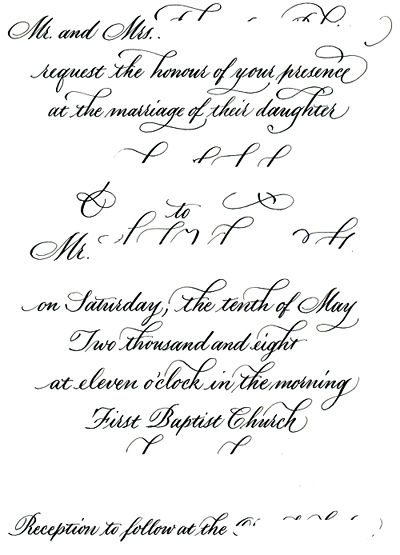 Mr. and Mrs.
request the honour of your presence
at the marriage of their daughter
to
Mr.
on Saturday, the tenth of May
Two thousand and eight
at eleven o'clock in the morning
First Baptist Church
Reception to follow at the